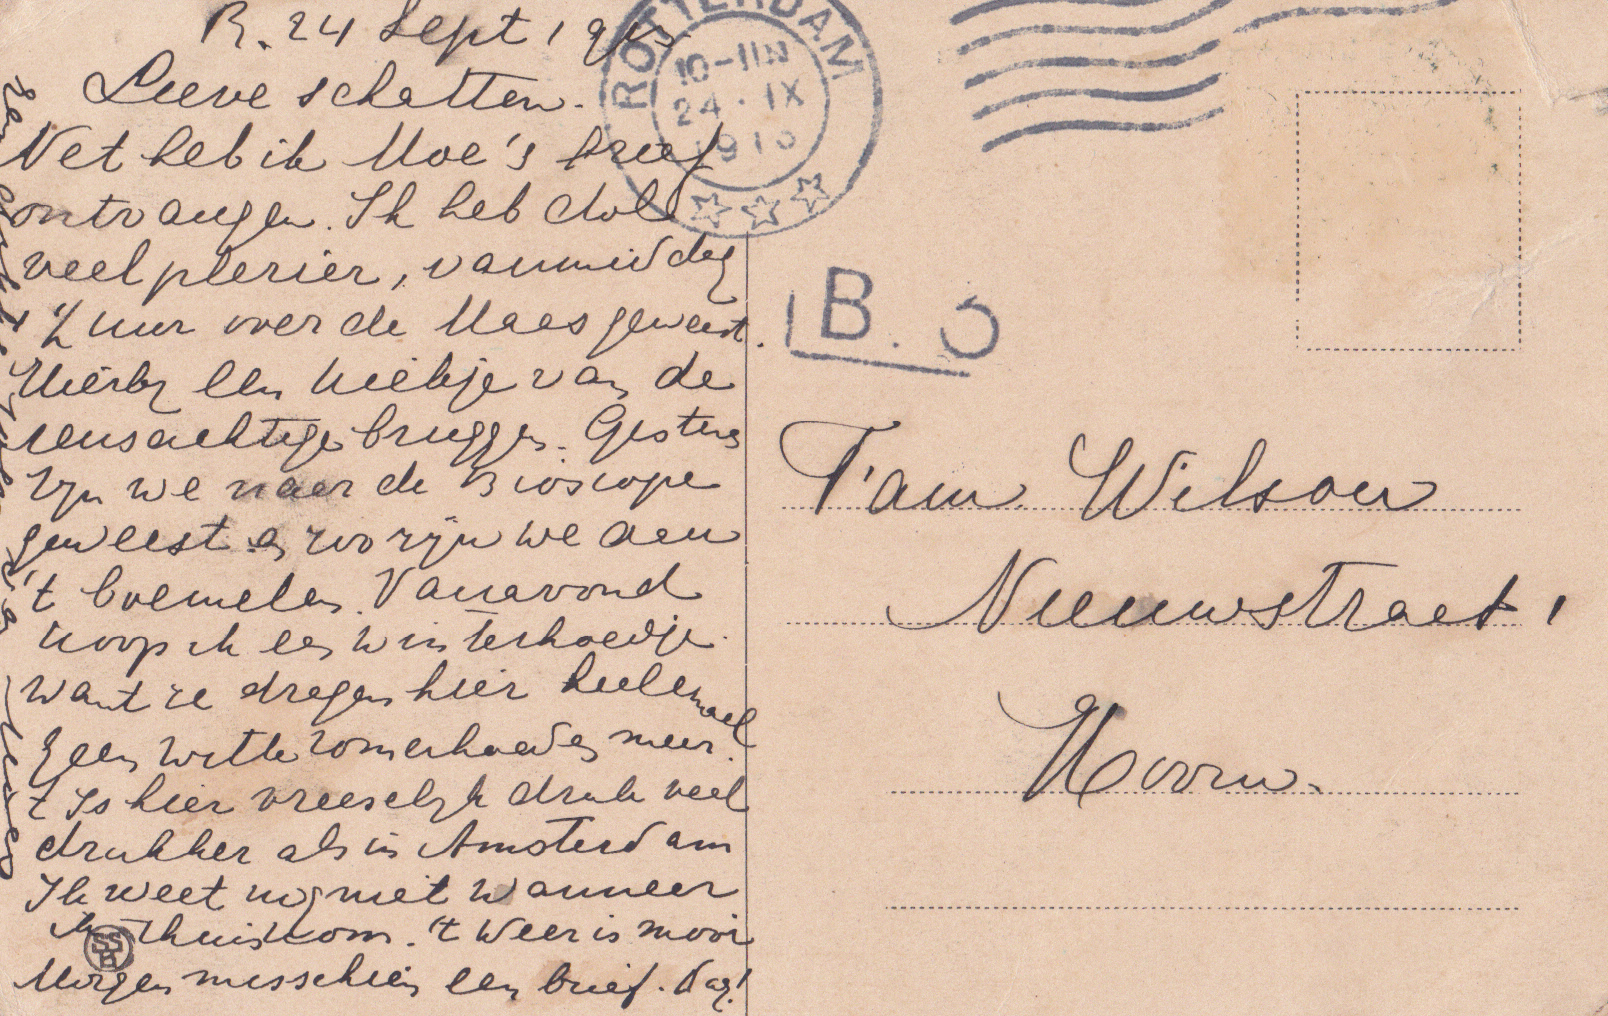 R. 24 Sept 1915
Lieve schatten.
Net heb ik Moe's brief
ontvangen. Ik heb dol
veel plezier, vanmiddag
½ uur over de Maas geweest.
Hierbij een kiekje van de
reusachtige bruggen. Gisteren
zijn we naar de Bioscope
geweest en zoo zijn we aan
't boemelen. Vanavond
koop ik een winterhoedje
want ze dragen hier heelemaal
geen witte zomerhoeden meer.
't Is hier vreeselijk druk veel
drukker als in Amsterdam
Ik weet nog niet wanneer
ik thuiskom. 't Weer is mooi
Morgen misschien een brief. Dag!
Een
van
ROTTERDAM
10-11N
24.IX
1915
B. 5
Fam. Wilson
Nieuwstraat 1
Hoorn.
SSR